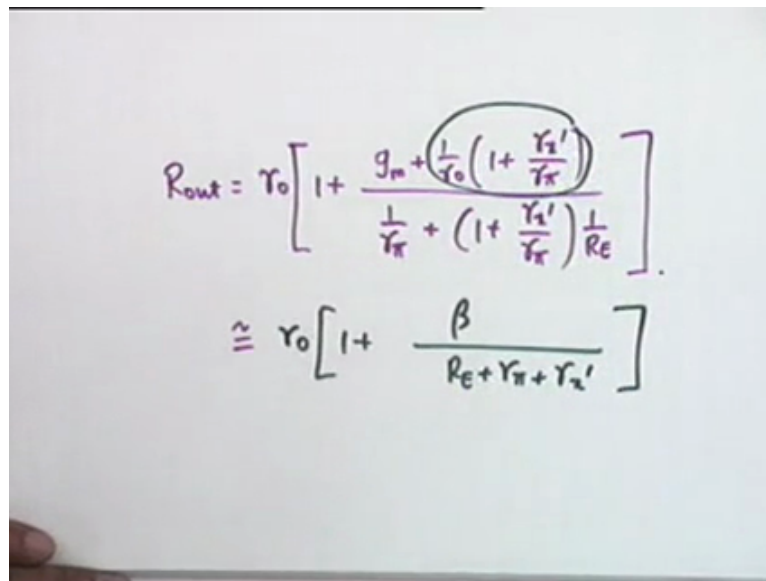 Rout = r₀[1 + (gm + 1/r₀(1 + rx'/rπ)) / (1/rπ + (1 + rx'/rπ) 1/RE)].
≅ r₀[1 + β / (RE + rπ + rx')]